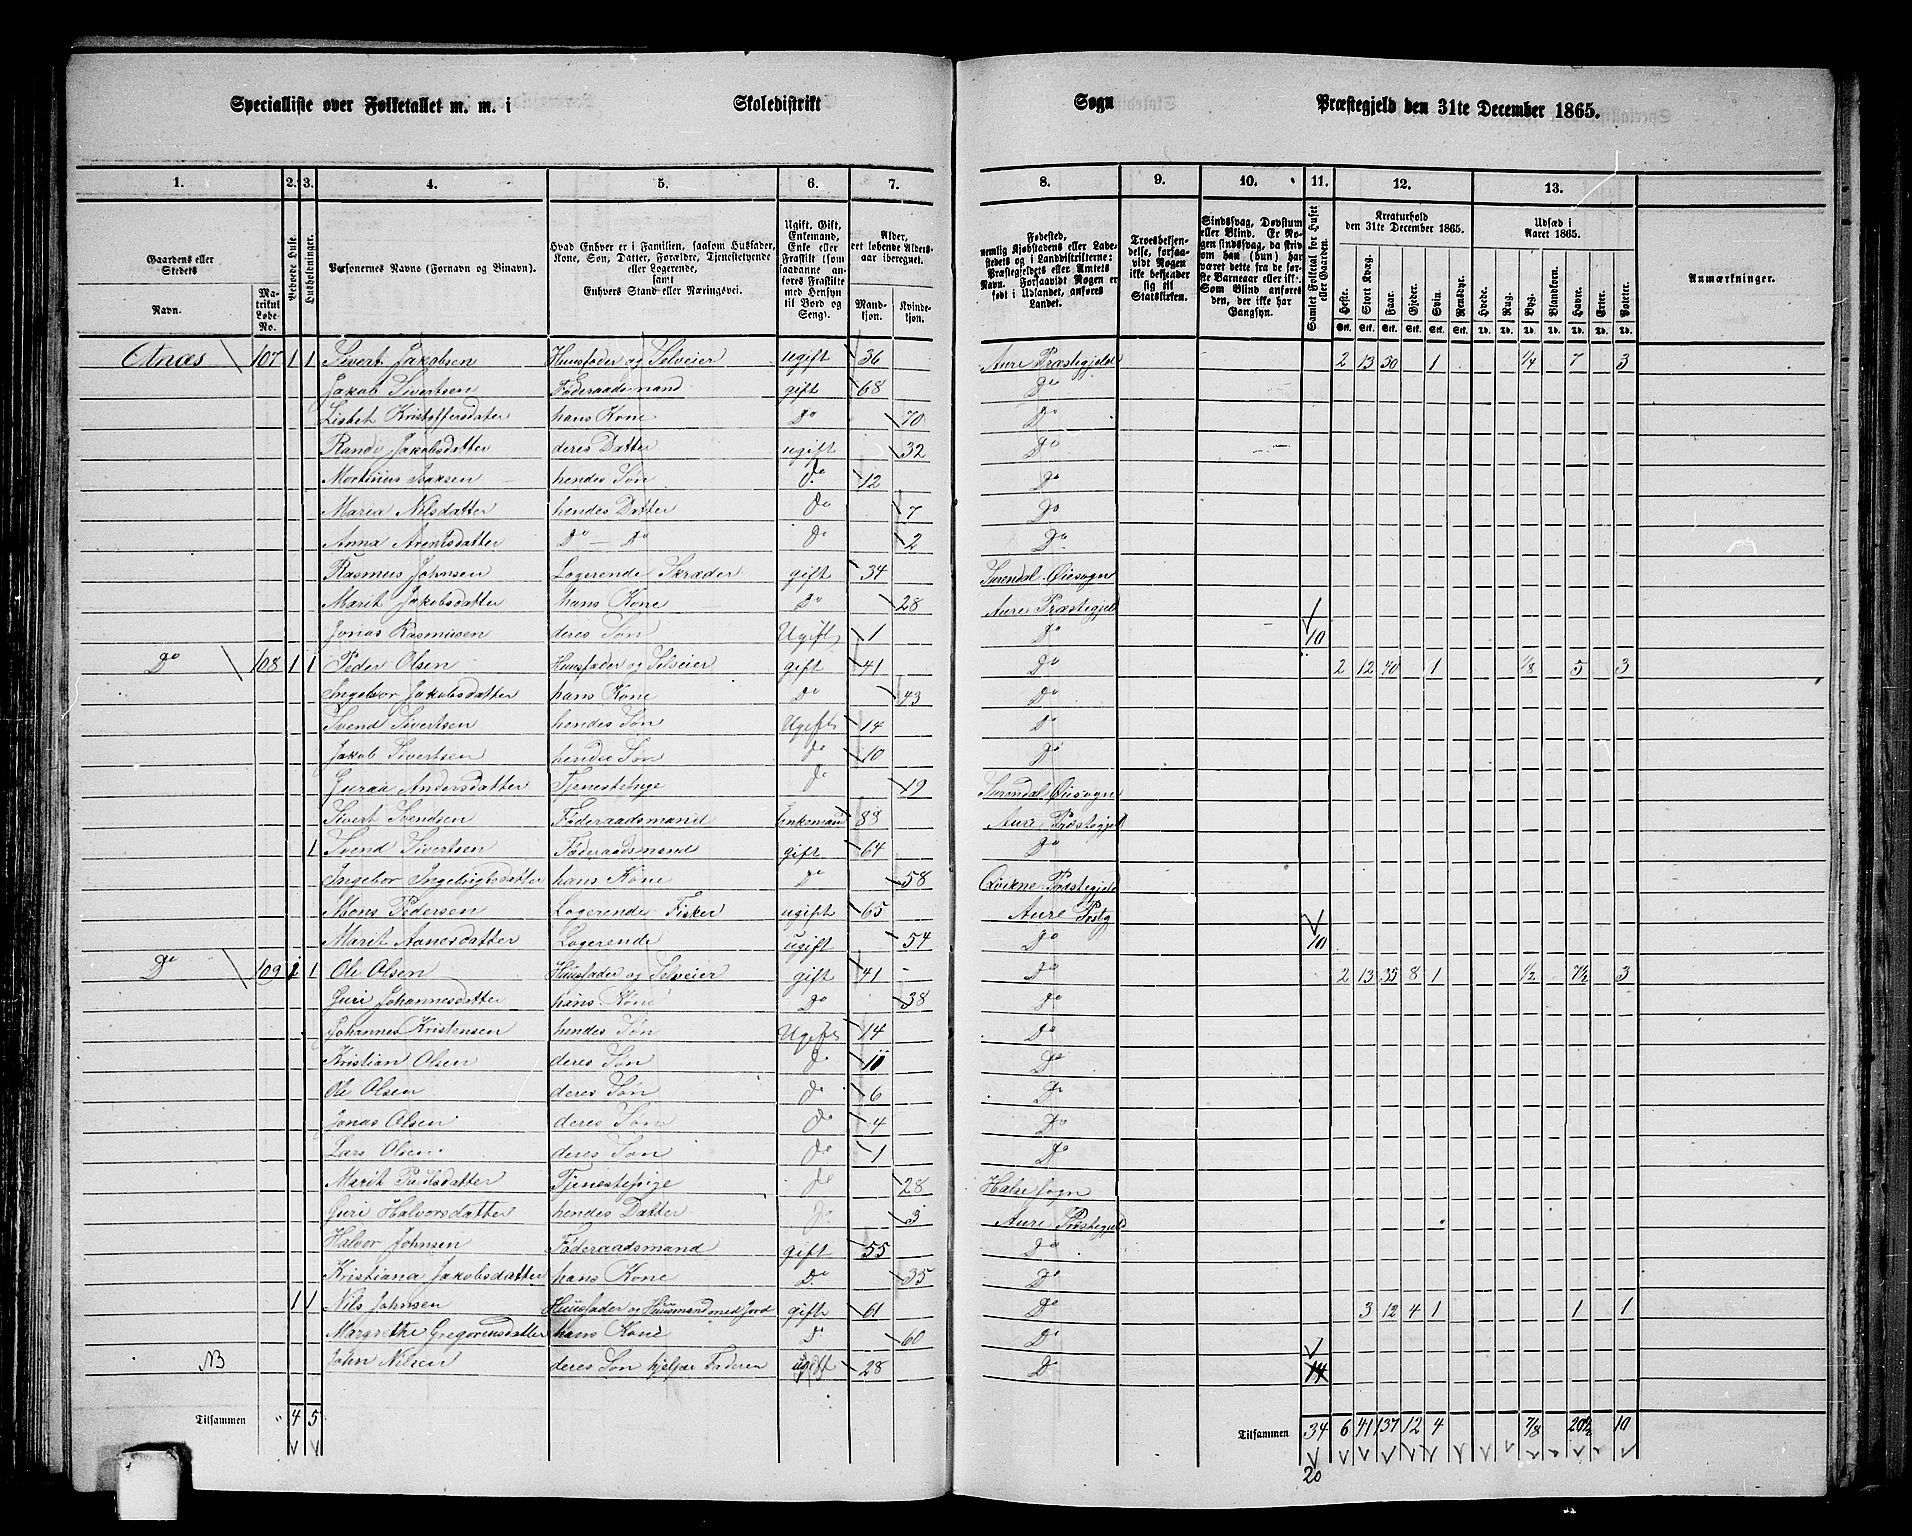 Specialliste over Folketallet m. m. i Skoledistrikt Sogn Præstegjeld den 31te December 1865.
1. 2. 3. 4. 5. 6. 7. 8. 9. 10. 11. 12. 13.
Gaardens eller Stedets Navn. Matrikul Løbe-No. Beboede Huse. Husholdninger. Personernes Navne (Fornavn og Binavn). Hvad Enhver er i Familien, saasom Husfader, Kone, Søn, Datter, Forældre, Tjenestetyende eller Logerende, samt Enhvers Stand eller Næringsvei. Ugift, Gift, Enkemand, Enke eller Fraskilt (som saadanne anføres Fraskilte med Hensyn til Bord og Seng). Alder, det løbende Aldersaar iberegnet. Mandkjøn. Kvindekjøn. Fødested, nemlig Kjøbstadens eller Ladestedets eller i Landdistrikterne: Præstegjeldets eller Amtets Navn. Forsaavidt Nogen er født i Udlandet, anføres Landet. Troesbekjendelse, forsaavidt Nogen ikke bekjender sig til Statskirken. Sindssvag, Døvstum eller Blind. Er Nogen sindssvag, da skrives om han (hun) har været dette fra de første Barneaar eller ikke. Som Blind anføres den, der ikke har Gangsyn. Samlet Folketal for Huset eller Gaarden. Kreaturhold den 31te December 1865. Heste. Stort Kvæg. Faar. Gjeder. Svin. Rensdyr. Udsæd i Aaret 1865. Hvede. Rug. Byg. Blandkorn. Havre. Erter. Poteter. Anmærkninger.
Otnæs 107 1 1 Sivert Jakobsen Huusfader og Selveier ugift 36 Aure Præstegjeld 2 13 50 1 1/4 7 3
Jakob Sivertsen Føderaadsmand gift 68 Do
Lisbet Kristoffersdater hans Kone Do 70 Do
Randi Jakobsdatter deres Datter ugift 32 Do
Mortinus Isaksen hendes Søn Do 12 Do
Maria Nilsdatter hendes Datter Do 7 Do
Anna Arentsdatter Do — Do Do 2 Do
Rasmus Johnsen Logerende Skræder gift 34 Surendal Øiesogn
Marit Jakobsdatter hans Kone Do 28 Aure Præstegjeld
Jonas Rasmusen deres Søn Ugift 1 Do 10
Do 108 1 1 Peder Olsen Huusfader og Selveier gift 41 Do 2 12 40 1 1/8 5 3
Ingebor Jakobsdatter hans Kone Do 43 Do
Svend Sivertsen hendes Søn Ugift 14 Do
Jakob Sivertsen hendes Søn Do 10 Do
Guraa Andersdatter Tjenestepige Do 19 Surendal Øiesogn
Sivert Svendsen Føderaadsmand Enkemand 88 Aure Præstegjeld
1 Svend Sivertsen Føderaadsmand gift 64 Do
Ingebor Ingebrigtsdatter hans Kone Do 58 Qvikne Præstegjeld
Mons Pedersen Logerende Fisker ugift 65 Aure Præstg
Marit Aanersdatter Logerende ugift 54 Do 10
Do 109 1 1 Ole Olsen Huusfader og Selveier gift 41 Do 2 13 35 8 1 1/2 7 1/2 3
Guri Johannesdatter hans Kone Do 38 Do
Johannes Kristensen hendes Søn Ugift 14 Do
Kristian Olsen deres Søn Do 10 Do
Ole Olsen deres Søn Do 6 Do
Jonas Olsen deres Søn Do 4 Do
Lars Olsen deres Søn Do 1 Do
Marit Poulsdatter Tjenestepige Do 28 Halse sogn
Guri Halvorsdatter hendes Datter Do 3 Aure Præstegjeld
Halvor Johnsen Føderaadsmand gift 55 Do
Kristiana Jakobsdatter hans Kone Do 35 Do
1 1 Nils Johnsen Huusfader og Huusmand med Jord gift 61 Do 3 12 4 1 1 1
Margrethe Gregoriusdatter hans Kone Do 60 Do
NB John Nilsen deres Søn hjelper Faderen ugift 28 Do 14
Tilsammen 4 5 Tilsammen 34 6 41 137 12 4 7/8 20 1/2 10
20